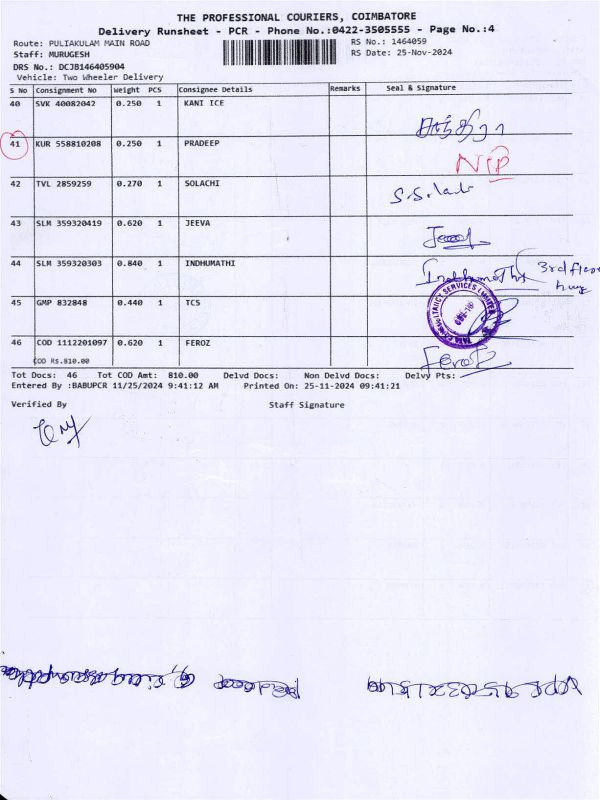 THE PROFESSIONAL COURIERS, COIMBATORE
Delivery Runsheet - PCR - Phone No.:0422-3505555 - Page No.:4
Route: PULIAKULAM MAIN ROAD RS No.: 1464059
Staff: MURUGESH RS Date: 25-Nov-2024
DRS No.: DCJB146405904
Vehicle: Two Wheeler Delivery
S No Consignment No Weight PCS Consignee Details Remarks Seal & Signature
40 SVK 40082042 0.250 1 KANI ICE
41 KUR 558810208 0.250 1 PRADEEP
42 TVL 2859259 0.270 1 SOLACHI
43 SLM 359320419 0.620 1 JEEVA
44 SLM 359320303 0.840 1 INDHUMATHI Indhumathi 3rd floor
45 GMP 832848 0.440 1 TCS TATA CONSULTANCY SERVICES LIMITED
46 COD 1112201097 0.620 1 FEROZ Feroz
COD Rs.810.00
Tot Docs: 46 Tot COD Amt: 810.00 Delvd Docs: Non Delvd Docs: Delvy Pts:
Entered By :BABUPCR 11/25/2024 9:41:12 AM Printed On: 25-11-2024 09:41:21
Verified By Staff Signature